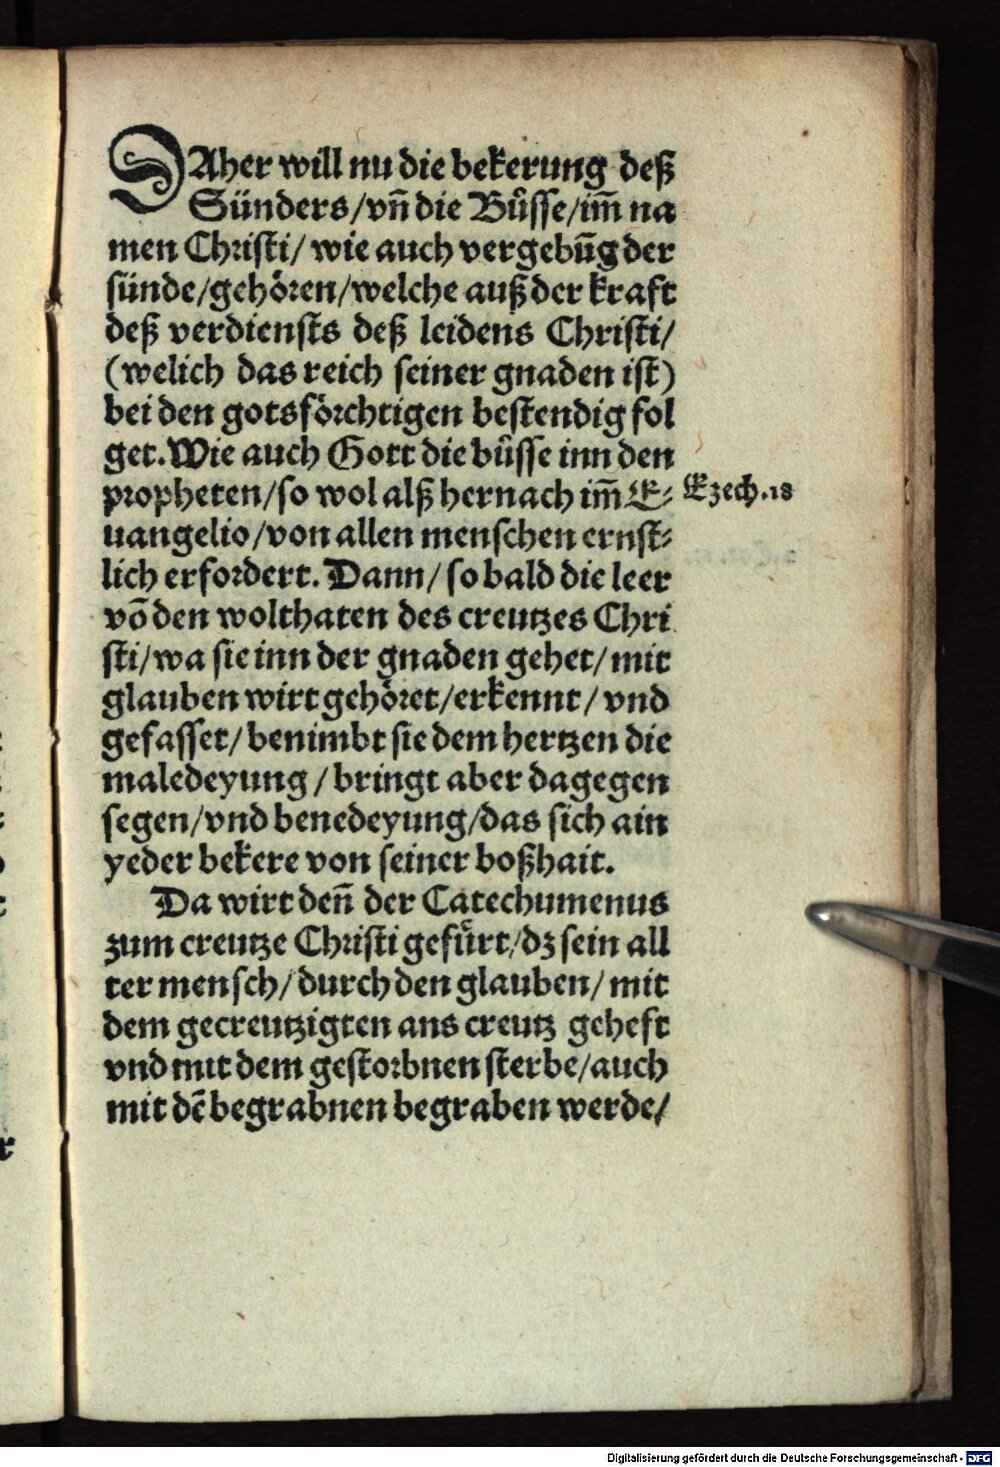 DAher will nu die bekerung deß
Sünders/vn̄ die Bůsse/im̄ na
men Christi/ wie auch vergebūg der
sünde/gehören/welche auß der kraft
deß verdiensts deß leidens Christi/
(welich das reich seiner gnaden ist)
bei den gotsförchtigen bestendig fol
get. Wie auch Gott die bůsse inn den
propheten/so wol alß hernach im̄ E⸗
Ezech.18
uangelio/von allen menschen ernst⸗
lich erfordert. Dann/ so bald die leer
vō den wolthaten des creutzes Chri
sti/wa sie inn der gnaden gehet/mit
glauben wirt gehöret/erkennt/ vnd
gefasset/ benimbt sie dem hertzen die
maledeyung/bringt aber dagegen
segen/vnd benedeyung/das sich ain
yeder bekere von seiner boßhait.
Da wirt den̄ der Catechumenus
zum creutze Christi gefürt/dz sein all
ter mensch/durch den glauben/ mit
dem gecreutzigten ans creutz geheft
vnd mit dem gestorbnen sterbe/auch
mit dē begrabnen begraben werde/
Digitalisierung gefördert durch die Deutsche Forschungsgemeinschaft - DFG